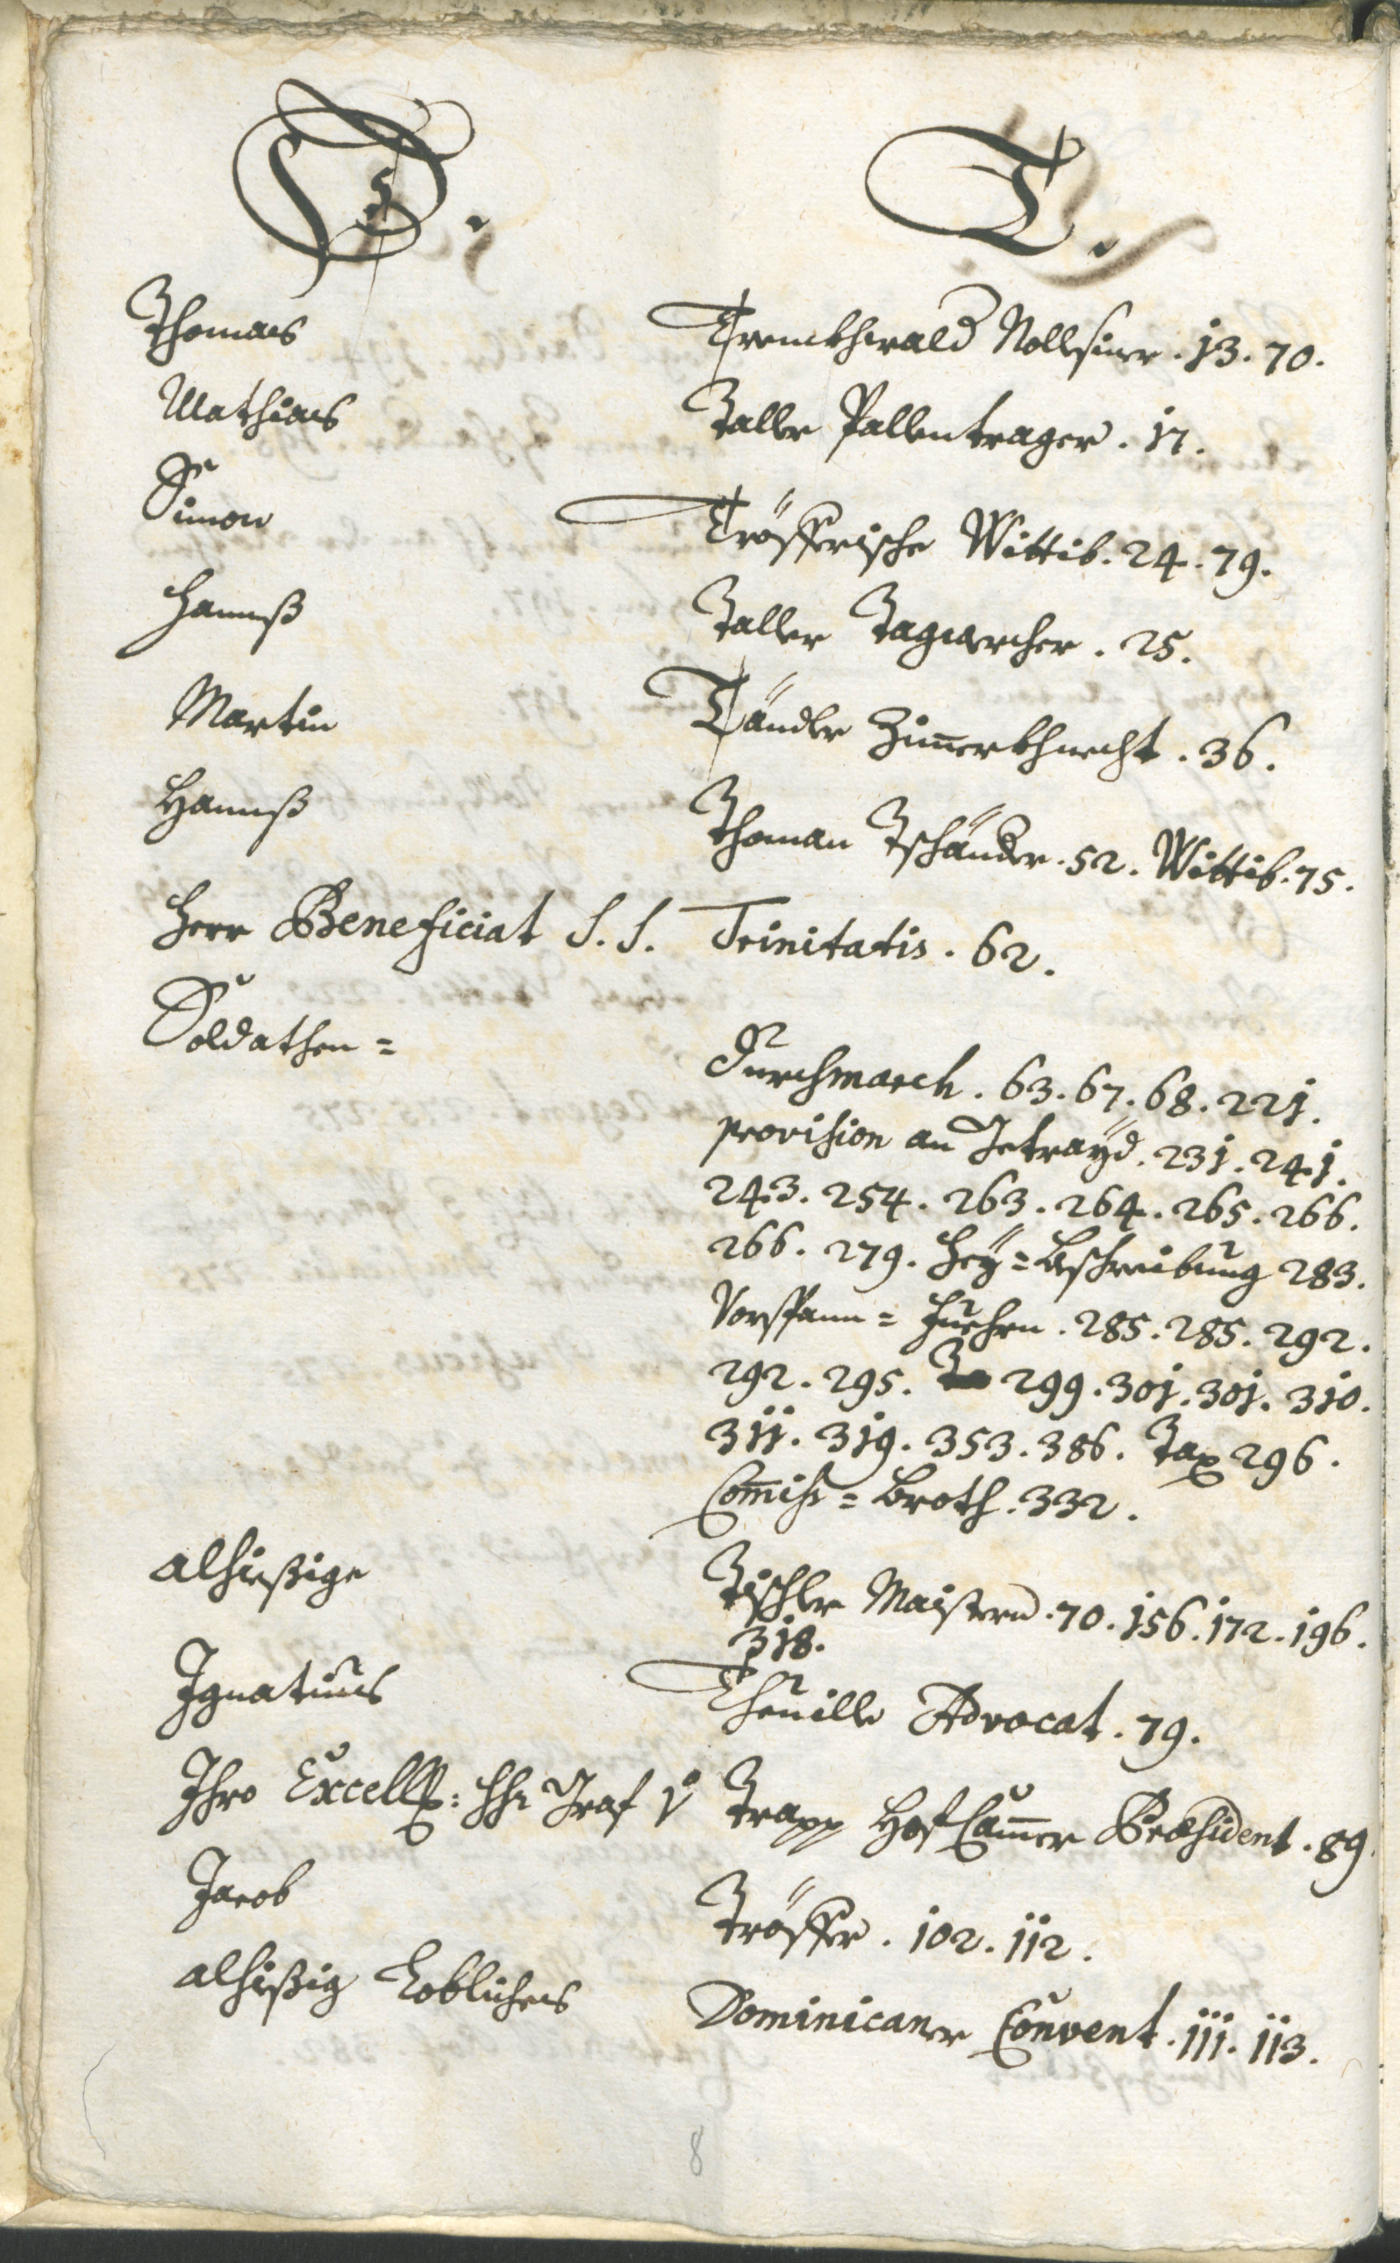 D. T.
Thomas Trenckhwald Nollsinr. 13. 70.
Mathias Taller Pallentrager. 17.
Simon Trösserische Wittib. 24. 79.
Hannß Taller Tagwercher. 25.
Martin Tändler Zim̅erkhnecht. 36.
Hannß Thoman Tschänder. 52. Wittib. 75.
Herr Beneficiat S. S. Trinitatis. 62.
Soldathen =
Durchmarch. 63. 67. 68. 221.
provision an Getrayd. 231. 241.
243. 254. 263. 264. 265. 266.
266. 279. Hey = Beschreibung 283.
Vorspann = Fuehrn. 285. 285. 292.
292. 295. 299. 301. 301. 310.
311. 319. 353. 386. Tax 296.
Com̅iss = Broth. 332.
alhießige Tischler Maistern. 70. 156. 172. 196.
318.
Ignatius Theuille Advocat. 79.
Ihro Excell: Graf v Trapp Hof Cam̅er Præsident. 89.
Jacob Trösser. 102. 112.
alhießig Loblichs Dominicaner Convent. 111. 113.
8